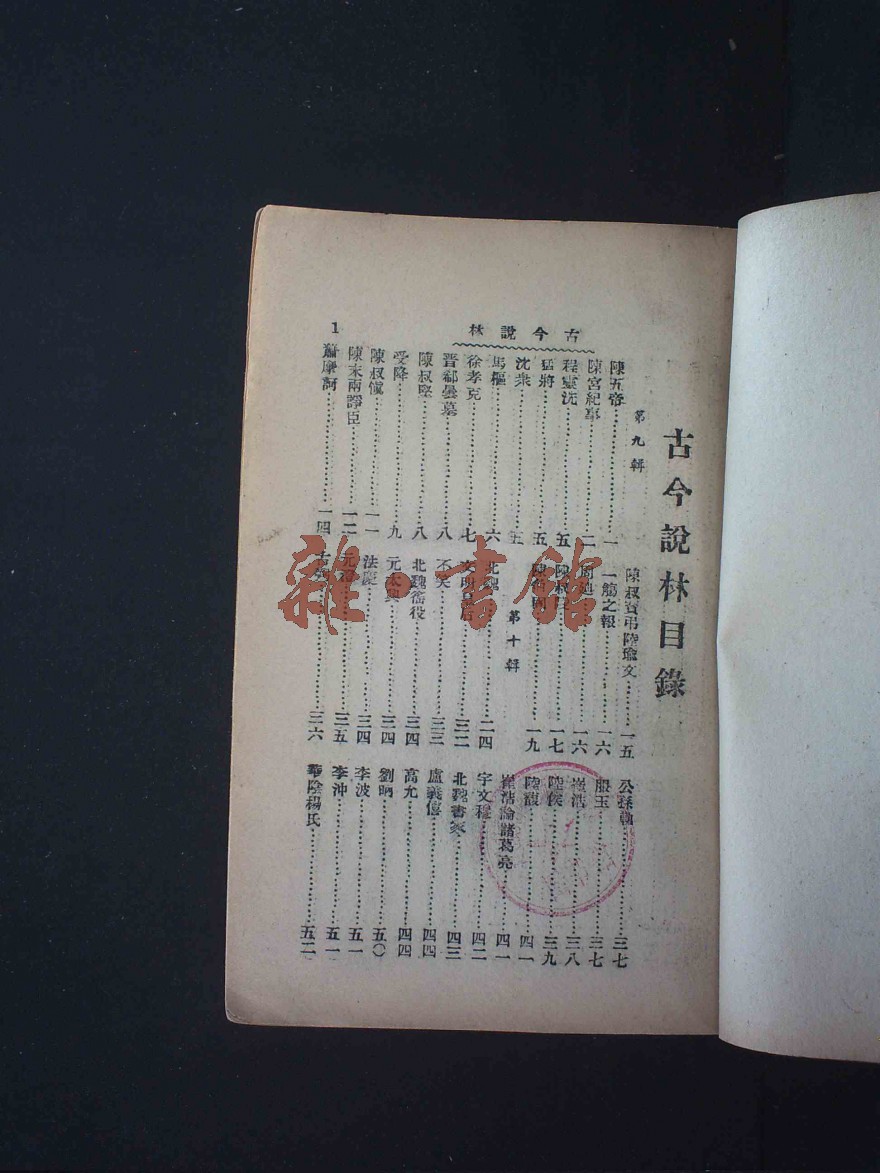 古今說林
1
古今說林目錄
第九輯
陳五帝……一
陳宮紀事……二
程靈洗……五
猛將……五
沈衆……五
馬樞……六
徐孝克……七
晋郗曇墓……八
陳叔堅……八
受降……九
陳叔愼……一一
陳末兩諍臣……一二
蕭摩訶……一四
陳叔寶弔陸瑜文……一五
一觴之報……一六
周迪……一六
陳叔……一七
……一九
第十輯
北魏……二四
文明……三二
不笑……三三
北魏徭役……三四
元太興……三四
法慶……三四
元禧……三五
古……三六
公孫軌……三七
服玉……三七
崔浩……三八
陸俟……三九
陸馛……四一
崔浩論諸葛亮……四一
宇文……四二
北魏書篆……四三
盧義僖……四四
高允……四四
劉昞……五〇
李波……五一
李沖……五一
華陰楊氏……五二
雜·書館